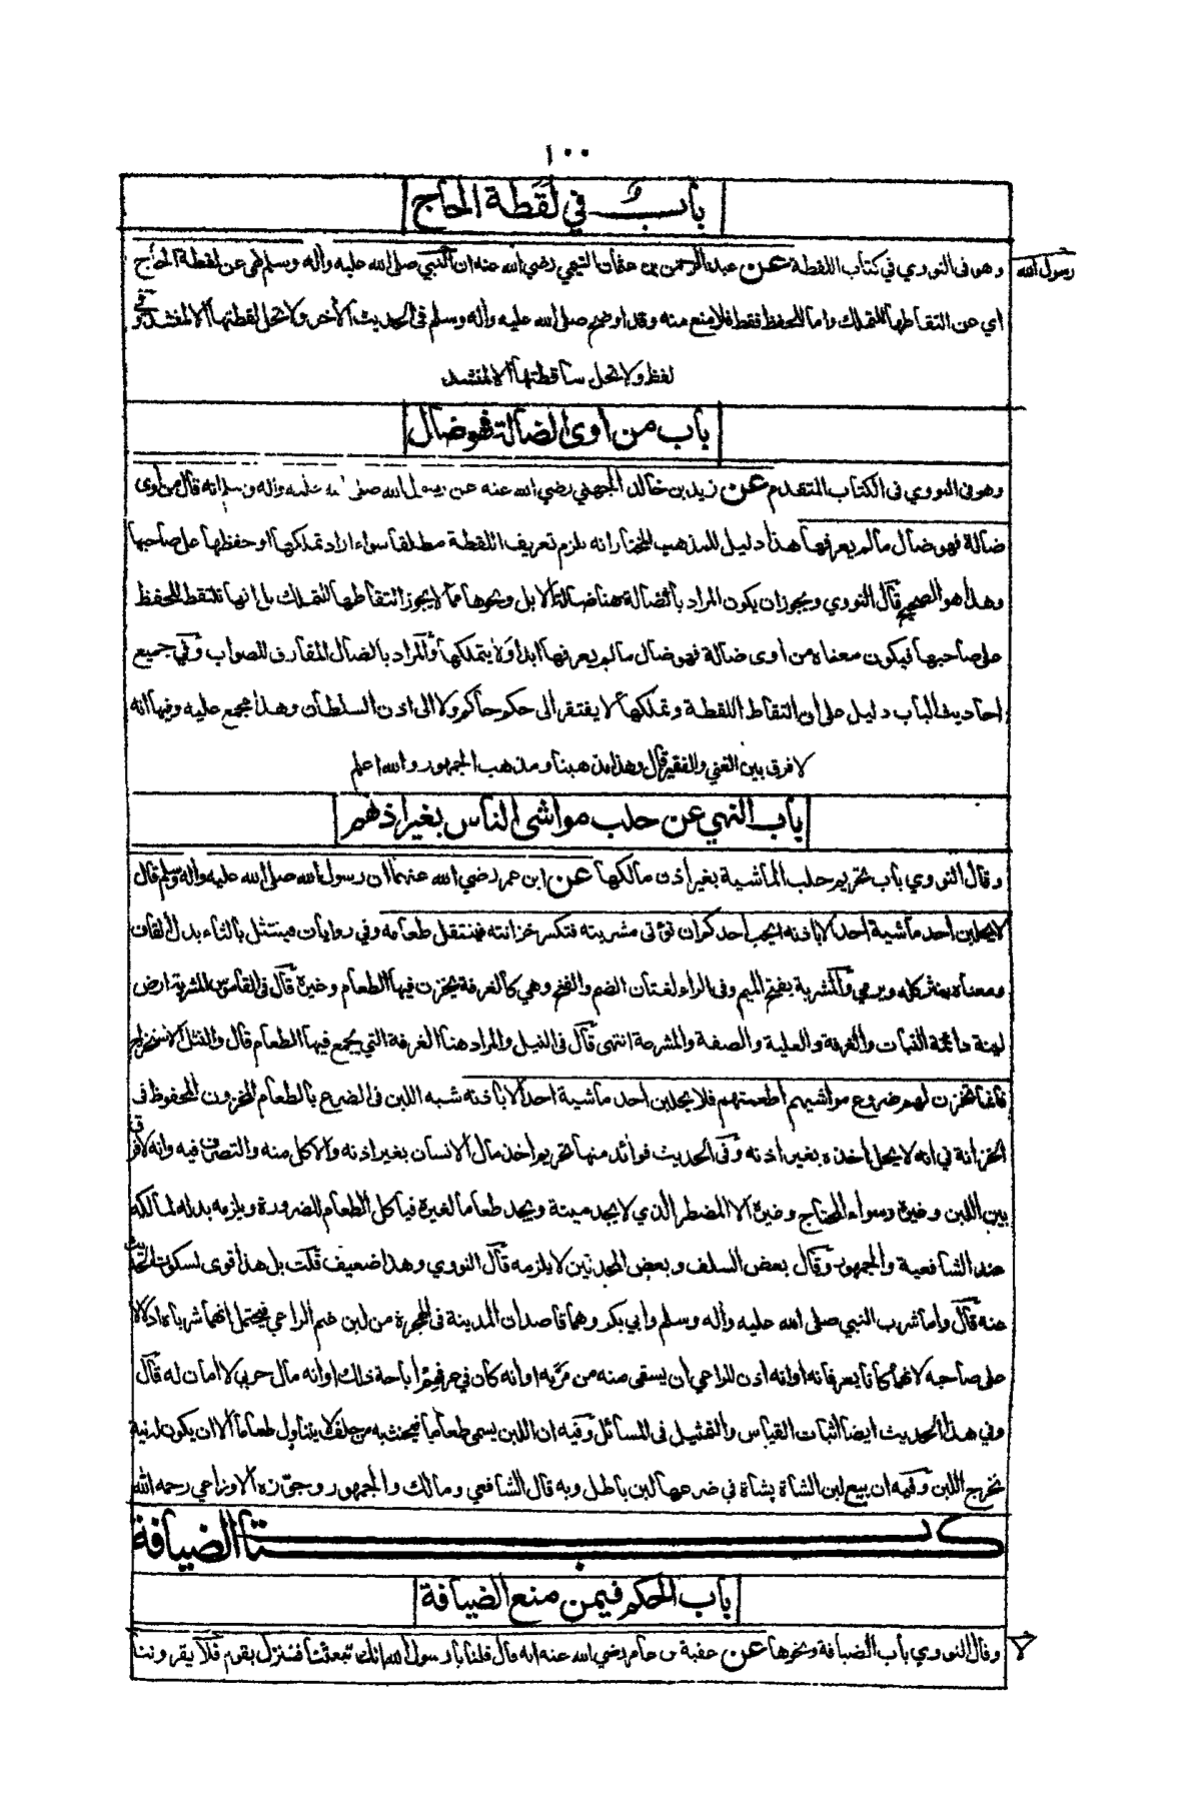 ١٠٠
باب في لقطة الحاج
وهو في النووي في كتاب اللقطة عن عبد الرحمن بن عثمان التيمي رضي الله عنه ان النبي صلى الله عليه واله وسلم نهى عن لقطة الحاج
رسول الله
اي عن التقاطها للتملك واما للحفظ فقط فلا منع منه وقد اوضح صلى الله عليه واله وسلم في الحديث الاخر ولا تحل لقطتها الا لمنشد وفي
لفظ ولا تحل ساقطتها الا لمنشد
باب من اوى الضالة فهو ضال
وهو في النووي في الكتاب المتقدم عن زيد بن خالد الجهني رضي الله عنه عن رسول الله صلى الله عليه واله وسلم انه قال من اوى
ضالة فهو ضال ما لم يعرفها هذا دليل للمذهب المختار انه يلزم تعريف اللقطة مطلقا سواء اراد تملكها او حفظها على صاحبها
وهذا هو الصحيح قال النووي ويجوز ان يكون المراد بالضالة هنا ضالة الابل ونحوها مما لا يجوز التقاطها للتملك بل انها تلتقط للحفظ
على صاحبها فيكون معناه من اوى ضالة فهو ضال ما لم يعرفها ابدا ولا يتملكها والمراد بالضال المفارق للصواب وفي جميع
احاديث الباب دليل على ان التقاط اللقطة وتملكها لا يفتقر الى حكم حاكم ولا الى اذن السلطان وهذا مجمع عليه وفيها انه
لا فرق بين الغني والفقير قال وهذا مذهبنا ومذهب الجمهور والله اعلم
باب النهي عن حلب مواشي الناس بغير اذنهم
وقال النووي باب تحريم حلب الماشية بغير اذن مالكها عن ابن عمر رضي الله عنهما ان رسول الله صلى الله عليه واله وسلم قال
لا يحلبن احد ماشية احد الا باذنه ايحب احدكم ان تؤتى مشربته فتكسر خزانته فينتقل طعامه وفي روايات فينتثل بالثاء بدل القاف
ومعناه ينثر كله ويرمى والمشربة بفتح الميم وفي الراء لغتان الضم والفتح وهي كالغرفة يخزن فيها الطعام وغيره قال في القاموس المشربة ارض
لينة دائمة النبات والغرفة والعلية والصفة والمشرعة انتهى قال في النيل والمراد هنا الغرفة التي يجمع فيها الطعام قال والنثل الاستخراج
فانما تخزن لهم ضروع مواشيهم اطعمتهم فلا يحلبن احد ماشية احد الا باذنه شبه اللبن في الضرع بالطعام المخزون المحفوظ في
الخزانة في انه لا يحل اخذه بغير اذنه وفي الحديث فوائد منها تحريم اخذ مال الانسان بغير اذنه والاكل منه والتصرف فيه وانه لا فرق
بين اللبن وغيره وسواء المحتاج وغيره الا المضطر الذي لا يجد ميتة ويجد طعاما لغيره فياكل الطعام للضرورة ويلزمه بدله لمالكه
عند الشافعية والجمهور وقال بعض السلف وبعض المحدثين لا يلزمه قال النووي وهذا ضعيف قلت بل هذا اقوى لسكوت الحديث
عنه قال واما شرب النبي صلى الله عليه واله وسلم وابي بكر وهما قاصدان المدينة في الهجرة من لبن غنم الراعي فيحتمل انهما شرباه ادلالا
على صاحبه لانهما كانا يعرفانه او انه اذن للراعي ان يسقي منه من مر به او انه كان في عرفهم اباحة ذلك او انه مال حربي لا امان له قال
وفي هذا الحديث ايضا اثبات القياس والتمثيل في المسائل وفيه ان اللبن يسمى طعاما فيحنث به من حلف لا يتناول طعاما الا ان يكون له نية
تخرج اللبن وفيه ان بيع لبن الشاة بشاة في ضرعها لبن باطل وبه قال الشافعي ومالك والجمهور وجوزه الاوزاعي رحمه الله
كتاب الضيافة
باب الحكم فيمن منع الضيافة
وقال النووي باب الضيافة ونحوها عن عقبة بن عامر رضي الله عنه انه قال قلنا يا رسول الله انك تبعثنا فننزل بقوم فلا يقروننا